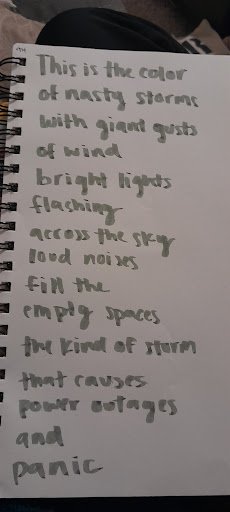 This is the color
of nasty storms
with giant gusts
of wind
bright lights
flashing
across the sky
loud noises
fill the
empty spaces
the kind of storm
that causes
power outages
and
panic